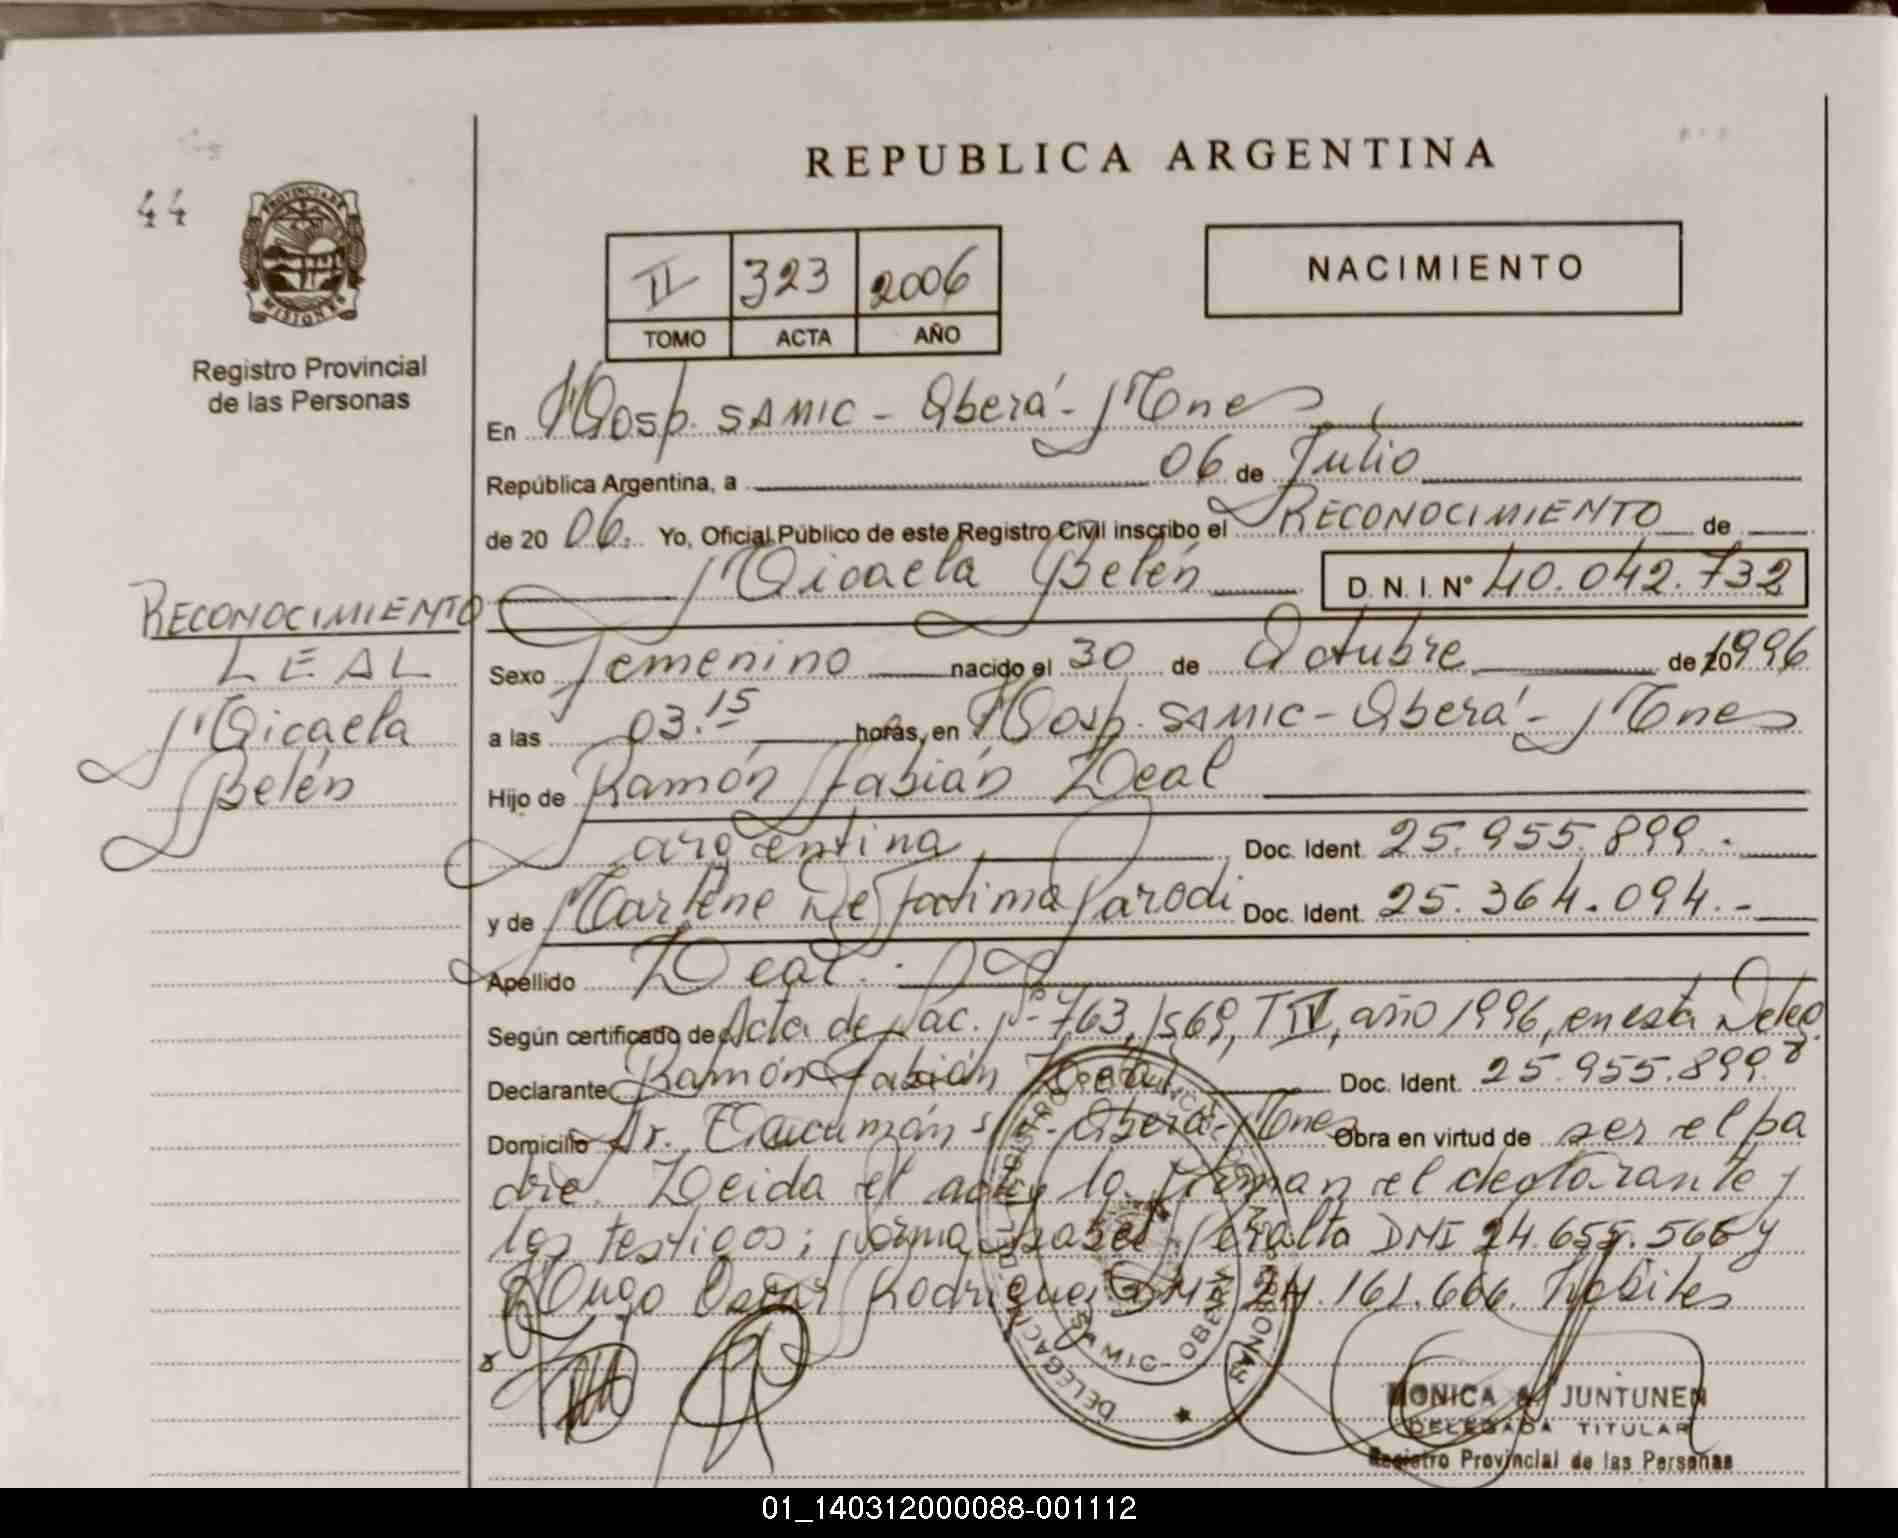 REPUBLICA ARGENTINA
44
PROVINCIA DE
MISIONES
Registro Provincial
de las Personas
II 323 2006
TOMO ACTA AÑO
NACIMIENTO
En Hosp. SAMIC - Oberá - Mnes
República Argentina, a 06 de Julio
de 20 06. Yo, Oficial Público de este Registro Civil inscribo el RECONOCIMIENTO de
Micaela Belén D. N. I. N° 40.042.732
RECONOCIMIENTO
LEAL
Micaela
Belén
Sexo Femenino nacido el 30 de Octubre de 20 1996
a las 03.15 horas, en Hosp. SAMIC - Oberá - Mnes
Hijo de Ramón Fabián Leal
argentina Doc. Ident. 25.955.899.-
y de Marlene De Fatima Parodi Doc. Ident. 25.364.094.-
Apellido Leal.-
Según certificado de Acta de Nac. Nº 763, fs 69, T IV, año 1996, en esta Deleg.
Declarante Ramón Fabián Leal Doc. Ident. 25.955.899
Domicilio Av. Tucumán s/n - Oberá - Mnes Obra en virtud de ser el pa
dre. Leida el acta la firman el declarante y
los testigos; Norma Isabel Peralta DNI 24.655.566 y
Hugo Oscar Rodriguez DNI 24.161.666. habiles
SAMIC - OBERA
MONICA A. JUNTUNEN
DELEGADA TITULAR
Registro Provincial de las Personas
01_140312000088-001112